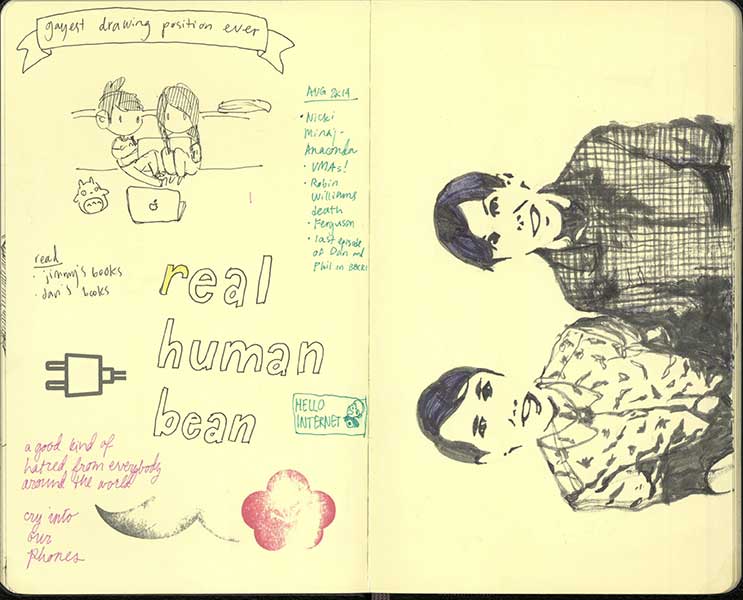 gayest drawing position ever
AUG 2K14
• Nicki
Minaj -
Anaconda
• VMAs!
• Robin
Williams
death
• Ferguson
• last episode
of Dan and
Phil in BBCR1
read
• jimmy's books
• dan's books
real
human
bean
HELLO
INTERNET
a good kind of
hatred from everybody
around the world
cry into
our
phones